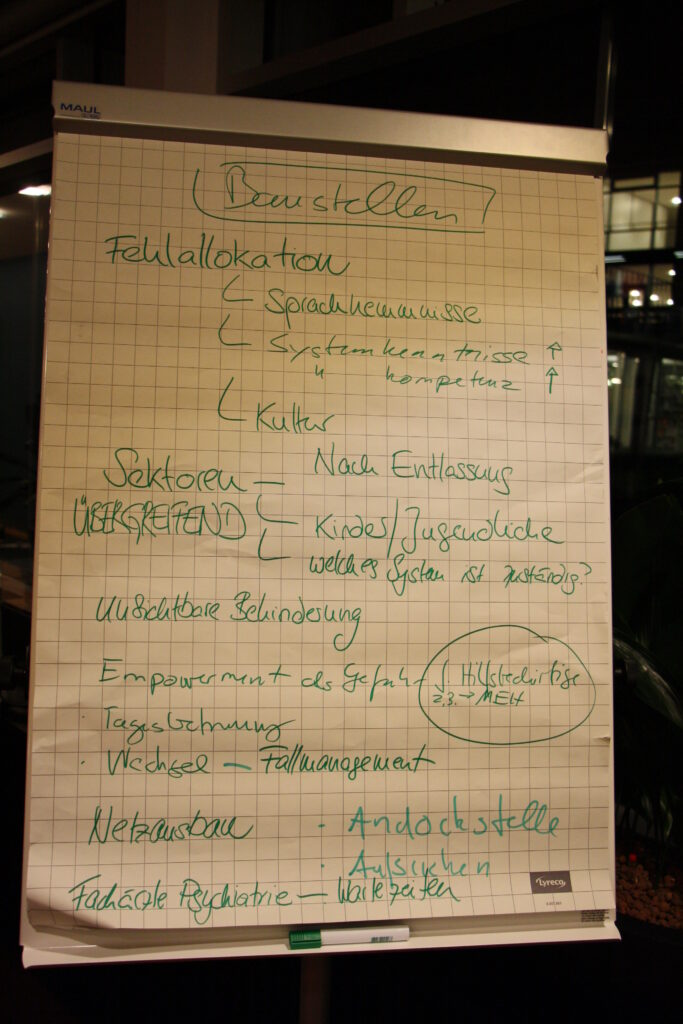 MAUL
Baustellen
Fehlallokation
Sprachhemmnisse
Systemkenntnisse ↑
" kompetenz ↑
Kultur
Sektoren — Nach Entlassung
ÜBERGREIFEND Kinder/Jugendliche
welches System ist zuständig?
Unsichtbare Behinderung
Empowerment als Gefahr f. Hilfsbedürftige
z.B. → MEH
· Tagesbetreuung
· Wechsel — Fallmanagement
Netzausbau · Andockstelle
· Aufsuchen
Fachärzte Psychiatrie — Wartezeiten
Lyreco